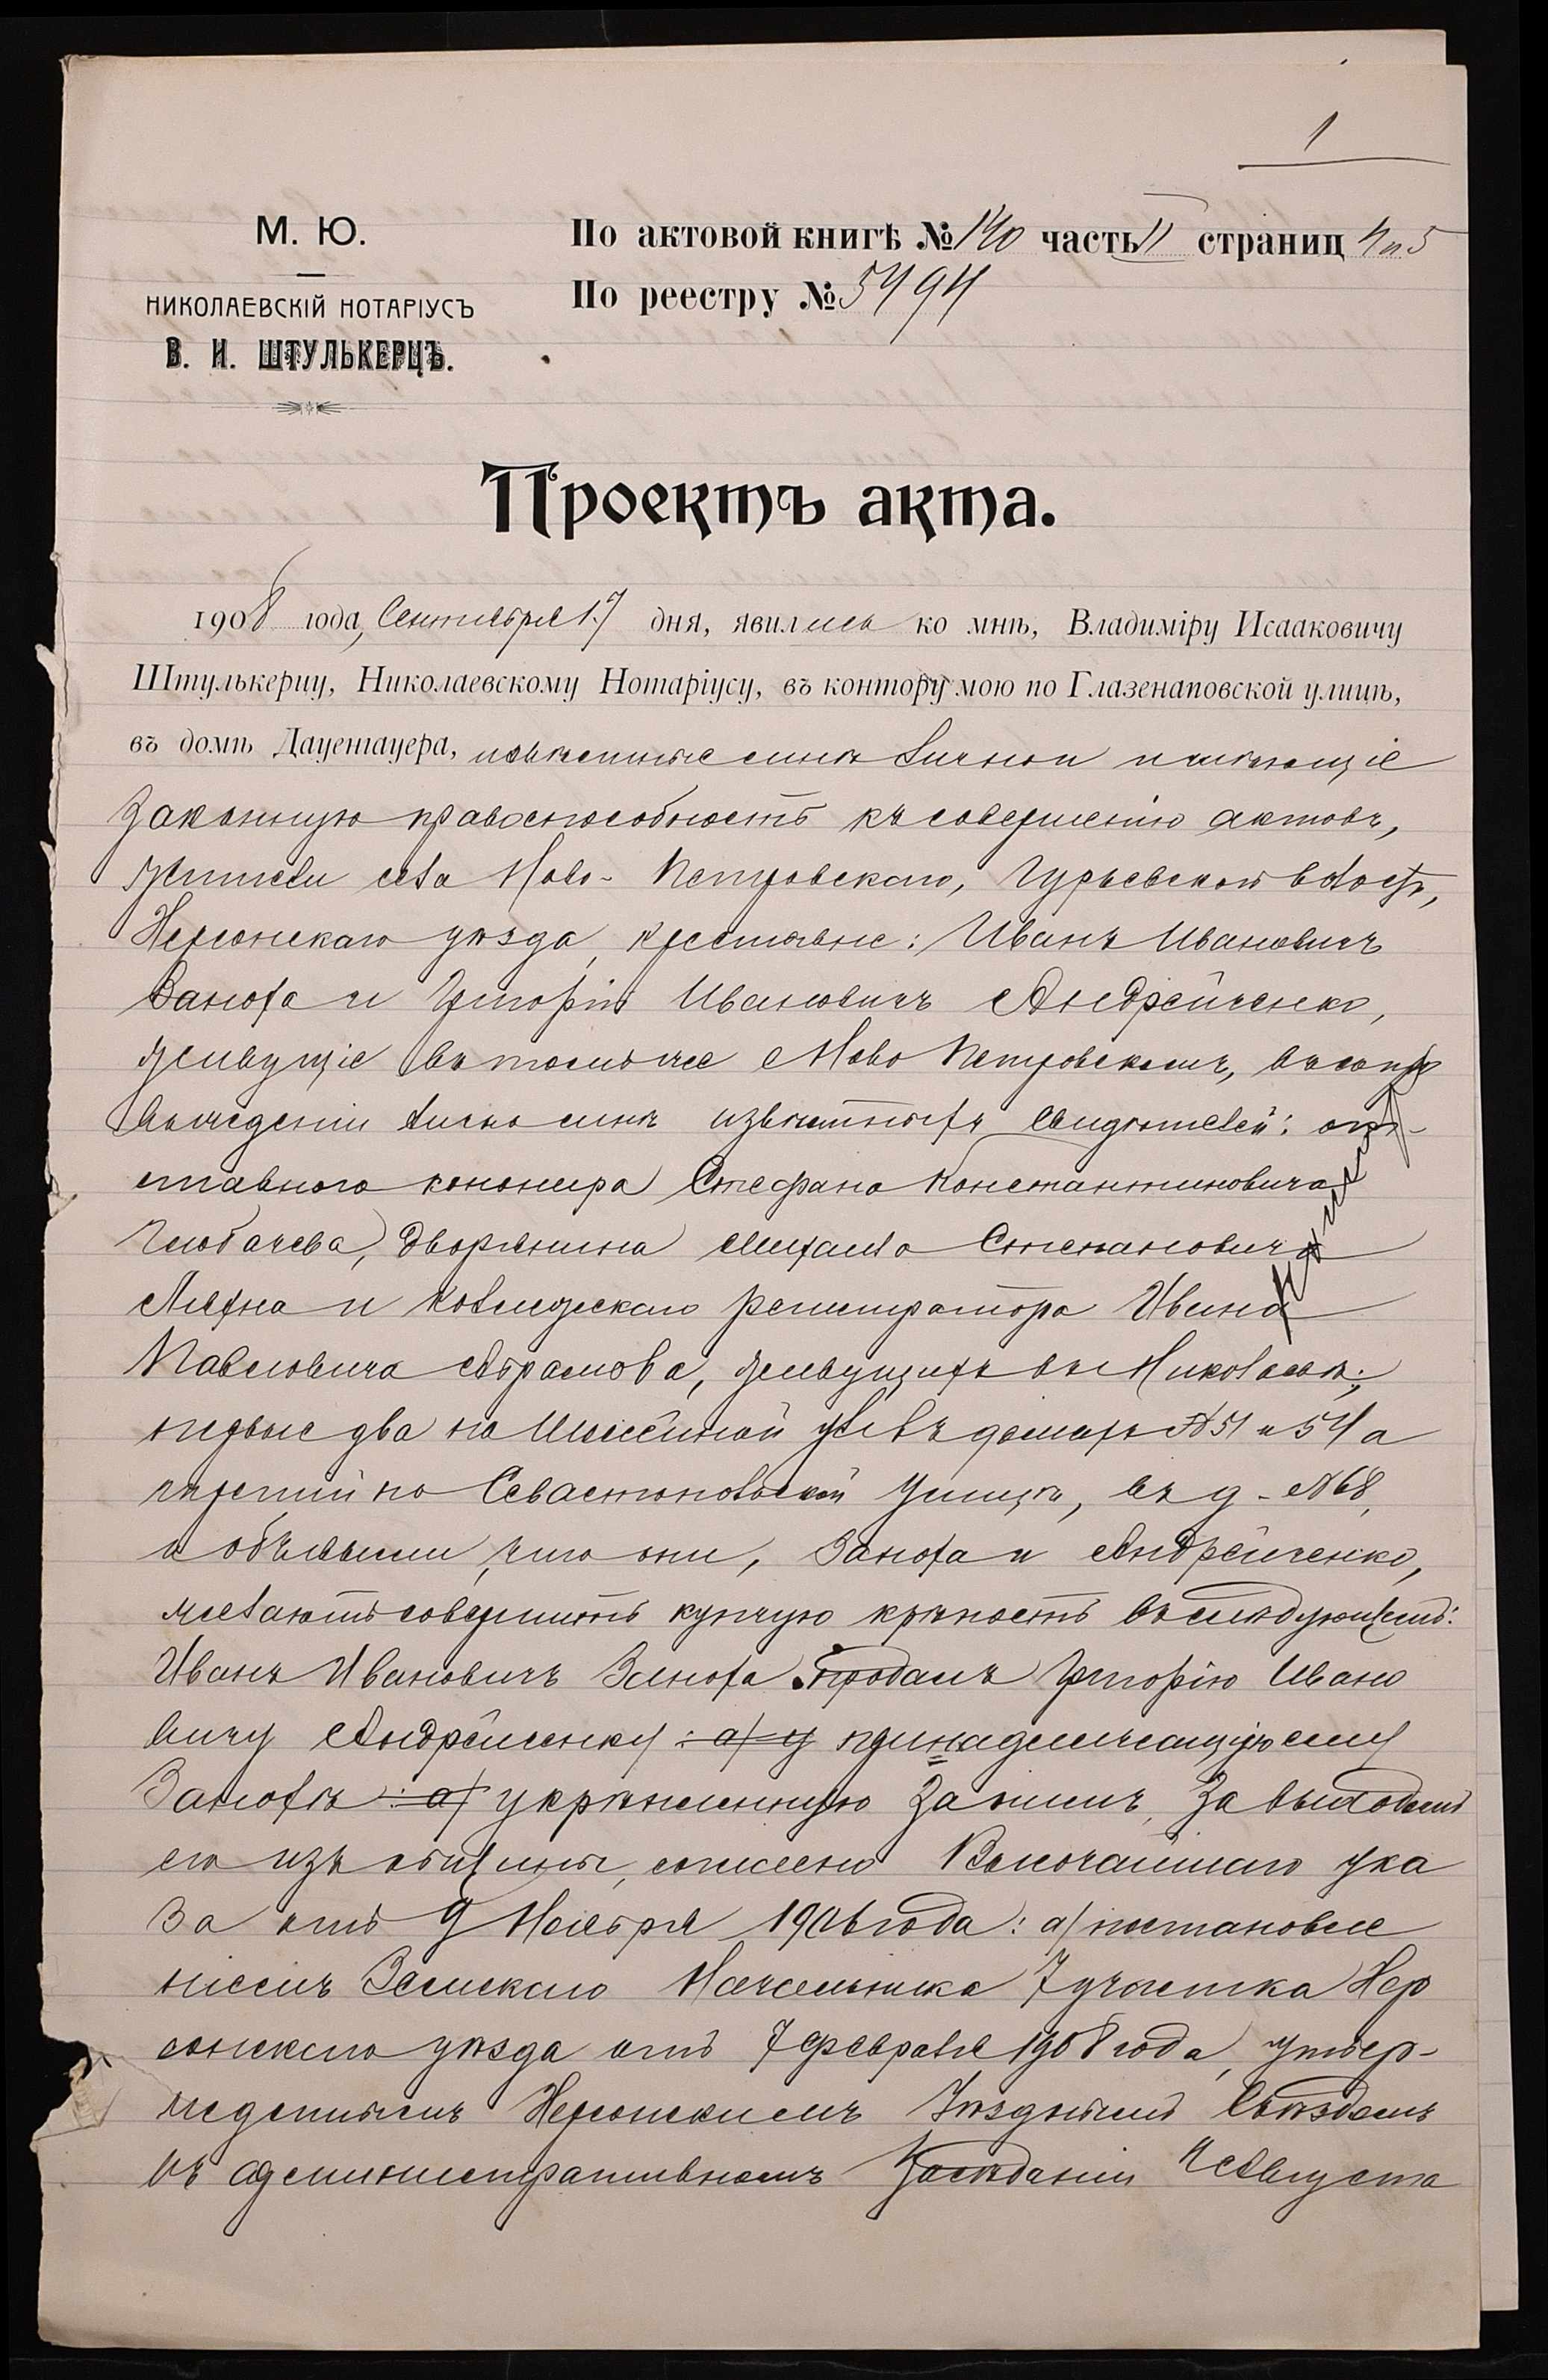 1
М. Ю.
НИКОЛАЕВСКІЙ НОТАРІУСЪ
В. И. ШТУЛЬКЕРЦЪ.
По актовой книгѣ № 140 часть II страниц 4 и 5
По реестру № 5494
Проектъ акта.
1908 года, Сентября 17 дня, явились ко мнѣ, Владиміру Исааковичу
Штулькерцу, Николаевскому Нотаріусу, въ контору мою по Глазенаповской улицѣ,
въ домѣ Дауенгауера, извѣстные мнѣ лично и имѣющіе
законную правоспособность къ совершенію актовъ,
жители села Ново-Петровскаго, Гурьевской волости,
Херсонскаго уѣзда, крестьяне: Иванъ Ивановичъ
Заноха и Григорій Ивановичъ Андрейченко,
живущіе въ томъ же Ново Петровскомъ, въ сопро
вожденіи лично мнѣ извѣстныхъ свидѣтелей: от-
ставного канонира Стефана Константиновича
дворянина Михаила Степановича
и Коллежскаго регистратора Ивана
Павловича Абрамова, живущихъ въ Николаевѣ:
первые два по ул. въ домахъ № 51 и 54 а
третій по Севастопольской улицѣ, въ д. № 68,
и объявили, что они, Заноха и Андрейченко,
желаютъ совершить купчую крѣпость въ слѣдующемъ:
Иванъ Ивановичъ Заноха продалъ Григорію Ивано
вичу Андрейченку : а) у принадлежащую ему
Занохѣ : а) укрѣпленную за нимъ, за выходомъ
его изъ общины, согласно Высочайшаго ука
за отъ 9 Ноября 1906 года: а) постановле
ніемъ Земскаго Начальника 7 участка Хер
сонскаго уѣзда отъ 7 февраля 1908 года, утвер-
жденнымъ Херсонскимъ Уѣзднымъ Съѣздомъ
въ административномъ засѣданіи Августа